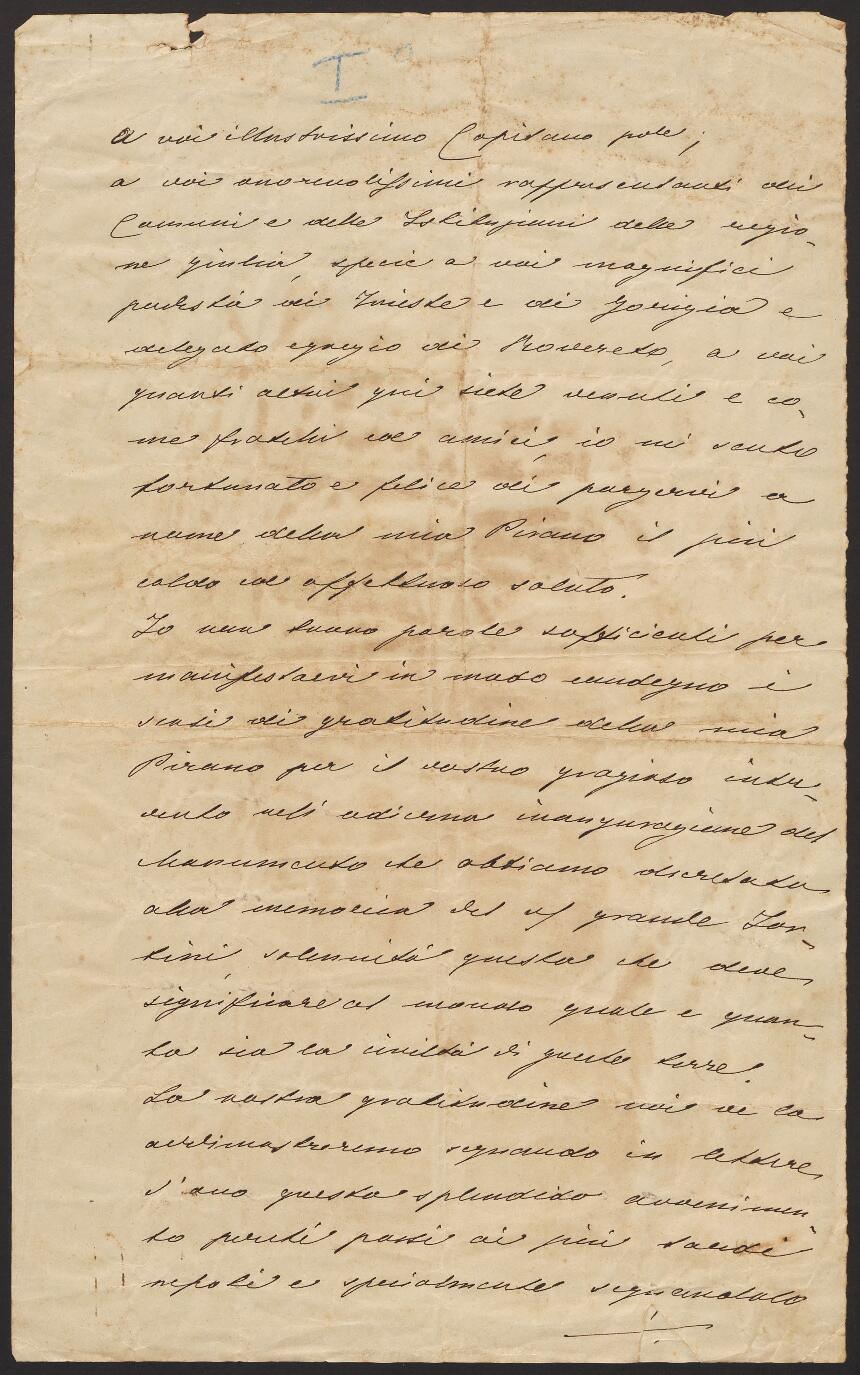 I°
a voi illustrissimo Capitano prov.;
a voi onorevolissimi rappresentanti dei
Comuni e delle Istituzioni della regio-
ne giulia, specie a voi magnifici
podestà di Trieste e di Gorizia e
delegato egregio di Rovereto, a voi
quanti altri qui siete venuti e co-
me fratelli ed amici, io mi sento
fortunato e felice di porgervi a
nome della mia Pirano il più
caldo ed affettuoso saluto.
Io non trovo parole sufficienti per
manifestarvi in modo condegno i
sensi di gratitudine della mia
Pirano per il vostro grazioso inter-
vento nell'odierna inaugurazione del
Monumento che abbiamo decretato
alla memoria del grande Tar-
tini, solennità questa che deve
significare al mondo quale e quan-
ta sia la civiltà di queste terre.
La nostra gratitudine noi ve la
addimostreremo segnando in lettere
d'oro questo splendido avvenimen-
to perché passi ai più tardi
nepoti e specialmente segnandolo